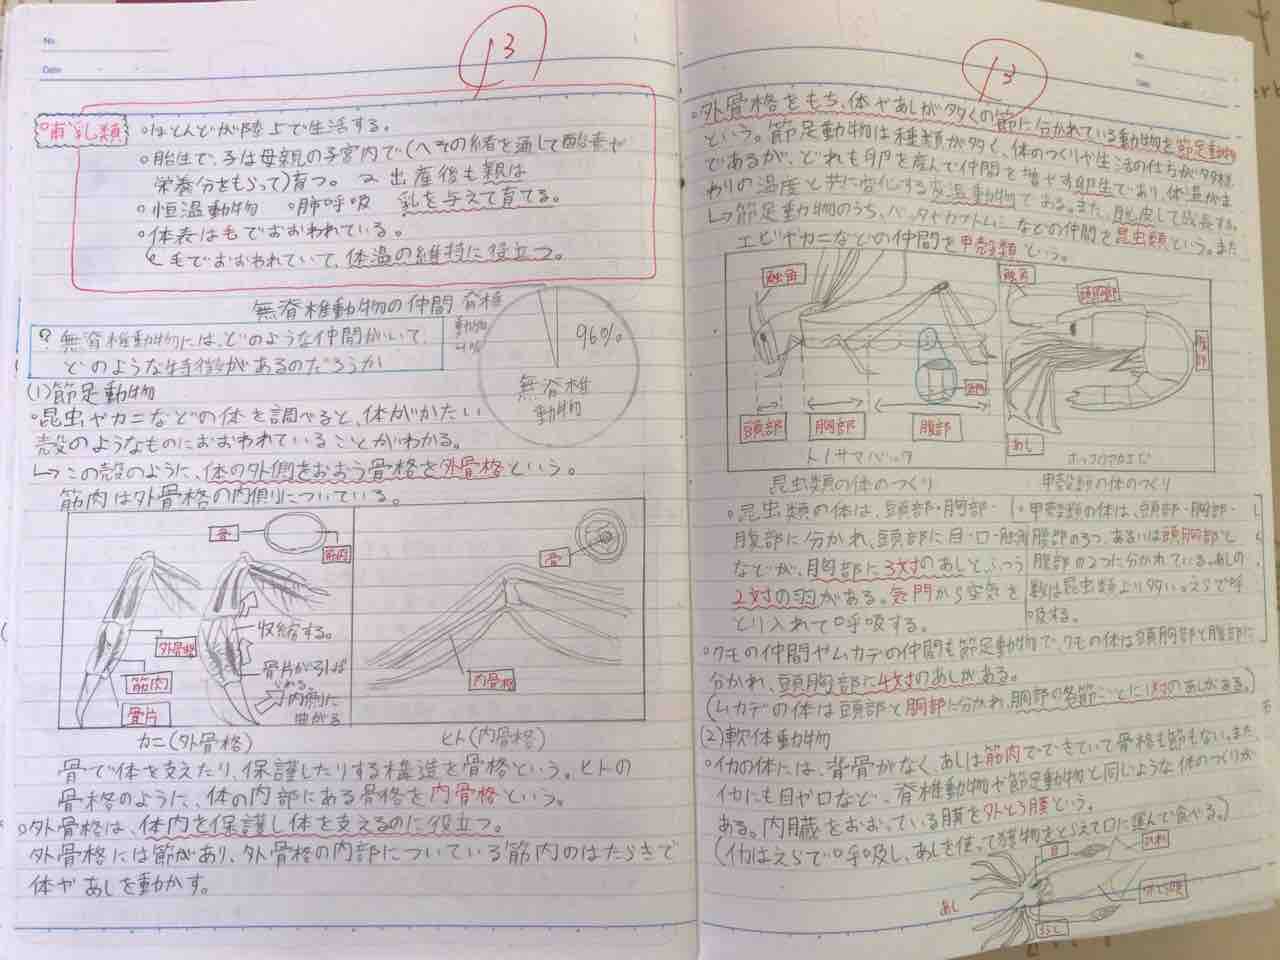 No.
Date
13
哺乳類
。ほとんどが陸上で生活する。
。胎生で、子は母親の子宮内で(へその緒を通して酸素や
栄養分をもらって)育つ。 出産後も親は
。恒温動物 。肺呼吸 乳を与えて育てる。
。体表は毛でおおわれている。
毛でおおわれていて、体温の維持に役立つ。
無脊椎動物の仲間
脊椎
動物
4%
96%
無脊椎
動物
? 無脊椎動物には、どのような仲間がいて、
どのような特徴があるのだろうか
(1)節足動物
。昆虫やカニなどの体を調べると、体がかたい
殻のようなものにおおわれていることがわかる。
↳この殻のように、体の外側をおおう骨格を外骨格という。
筋肉は外骨格の内側についている。
骨
筋肉
外骨格
筋肉
骨片
収縮する。
骨片がひっぱ
られる。
内側に
曲がる
骨
内骨格
カニ(外骨格)
ヒト(内骨格)
骨で体を支えたり、保護したりする構造を骨格という。ヒトの
骨格のように、体の内部にある骨格を内骨格という。
。外骨格は、体内を保護し体を支えるのに役立つ。
外骨格には節があり、外骨格の内部についている筋肉のはたらきで
体やあしを動かす。
No.
Date
13
。外骨格をもち、体やあしが多くの節に分かれている動物を節足動物
という。節足動物は種類が多く、体のつくりや生活の仕方が多様
であるが、どれも卵を産んで仲間を増やす卵生であり、体温がま
わりの温度と共に変化する変温動物である。また、脱皮して成長する。
↳節足動物のうち、バッタやカブトムシなどの仲間を昆虫類という。また
エビやカニなどの仲間を甲殻類という。
触角
気門
頭部
胸部
腹部
トノサマバッタ
触角
頭胸部
腹部
あし
ホッコクアカエビ
昆虫類の体のつくり
甲殻類の体のつくり
。昆虫類の体は、頭部・胸部・
腹部に分かれ、頭部に目・口・触角
などが、胸部に3対のあしと、ふつう
2対の羽がある。気門から空気を
とり入れて呼吸する。
。甲殻類の体は、頭部・胸部・
腹部の3つ、あるいは頭胸部と
腹部の2つに分かれている。あしの
数は昆虫類より多い。えらで呼
吸する。
。クモの仲間やムカデの仲間も節足動物で、クモの体は頭胸部と腹部に
分かれ、頭胸部に4対のあしがある。
(ムカデの体は頭部と胴部に分かれ、胴部の各節ごとに1対のあしがある。)
(2)軟体動物
。イカの体には、背骨がなく、あしは筋肉でできていて骨格も節もない。また、
イカにも目や口など、脊椎動物や節足動物と同じような体のつくりが
ある。内臓をおおっている膜を外とう膜という。
(イカはえらで呼吸し、あしを使って獲物をとらえて口に運んで食べる。)
目
ひれ
外とう膜
あし